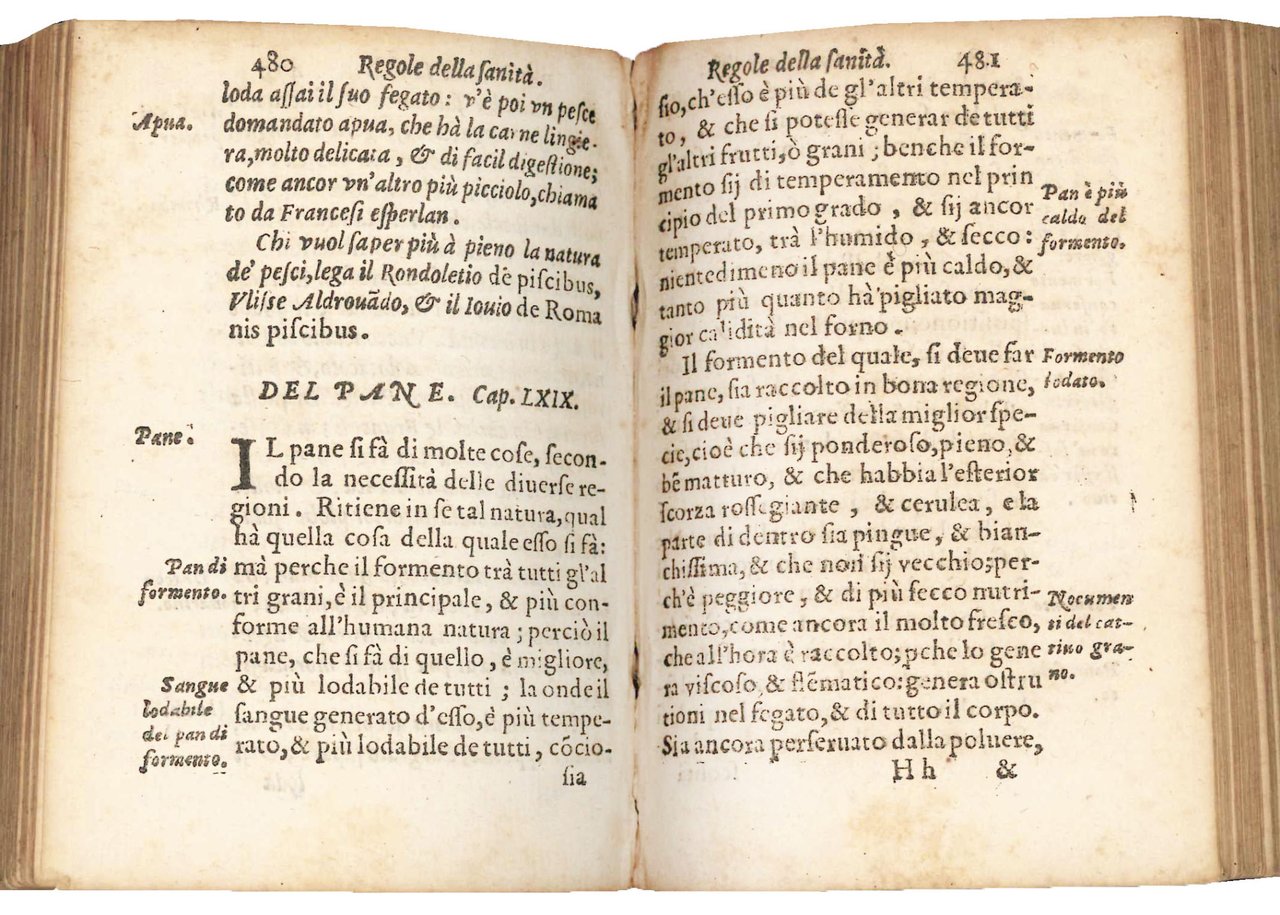 480 Regole della sanità.
loda assai il suo fegato: v'è poi vn pesce
Apua.
domandato apua, che hà la carne lingie-
ra, molto delicata, & di facil digestione;
come ancor vn'altro più picciolo, chiama
to da Francesi esperlan.
Chi vuol saper più à pieno la natura
de' pesci, lega il Rondoletio de piscibus,
Vlisse Aldrouãdo, & il Iouio de Roma
nis piscibus.
DEL PANE. Cap. LXIX.
Pane.
IL pane si fà di molte cose, secon-
do la necessità delle diuerse re-
gioni. Ritiene in se tal natura, qual
hà quella cosa della quale esso si fà:
Pan di
formento.
mà perche il formento trà tutti gl'al
tri grani, è il principale, & più con-
forme all'humana natura; perciò il
pane, che si fà di quello, è migliore,
Sangue
lodabile
del pan di
formento.
& più lodabile de tutti; la onde il
sangue generato d'esso, è più tempe-
rato, & più lodabile de tutti, cõcio-
sia
Regole della sanità. 481
sio, ch'esso è più de gl'altri tempera-
to, & che si potesse generar de tutti
gl'altri frutti, ò grani; benche il for-
mento sij di temperamento nel prin
cipio del primo grado, & sij ancor
temperato, trà l'humido, & secco:
nientedimeno il pane è più caldo, &
tanto più quanto hà pigliato mag-
gior calidità nel forno.
Pan è più
caldo del
formento.
Il formento del quale, si deue far
il pane, sia raccolto in bona regione,
& si deue pigliare della miglior spe-
cie, cioè che sij ponderoso, pieno, &
bẽ matturo, & che habbia l'esterior
scorza rossegiante, & cerulea, e la
parte di dentro sia pingue, & bian-
chissima, & che non sij vecchio; per-
ch'è peggiore, & di più secco nutri-
mento, come ancora il molto fresco,
che all'hora è raccolto; pche lo gene
ra viscoso, & flẽmatico: genera ostru
tioni nel fegato, & di tutto il corpo.
Sia ancora perseruato dalla poluere,
Formento
lodato.
Nocumen
ti del cat-
tiuo gra-
no.
Hh &